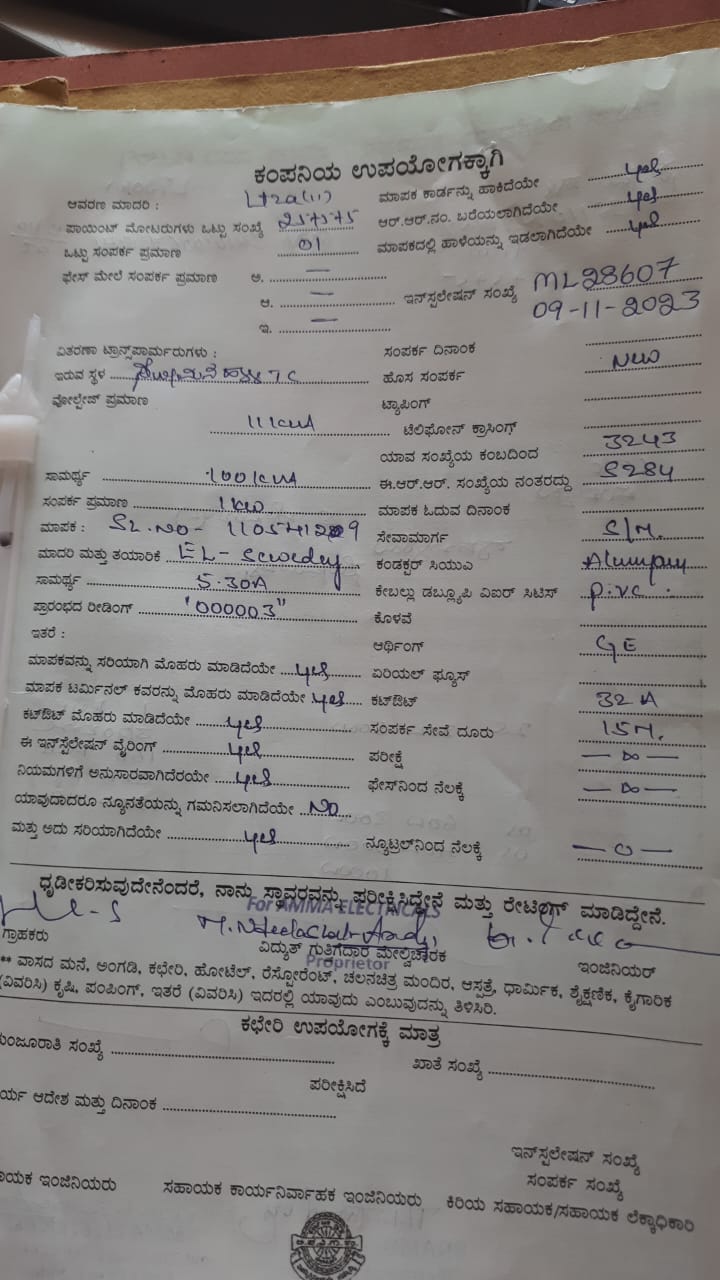 ಕಂಪನಿಯ ಉಪಯೋಗಕ್ಕಾಗಿ
ಆವರಣ ಮಾದರಿ : Lt2a(ii) ಮಾಪಕ ಕಾರ್ಡನ್ನು ಹಾಕಿದೆಯೇ yes
ಪಾಯಿಂಟ್ ಮೋಟರುಗಳು ಒಟ್ಟು ಸಂಖ್ಯೆ ಆರ್.ಆರ್.ನಂ. ಬರೆಯಲಾಗಿದೆಯೇ yes
ಒಟ್ಟು ಸಂಪರ್ಕ ಪ್ರಮಾಣ 01 ಮಾಪಕದಲ್ಲಿ ಹಾಳೆಯನ್ನು ಇಡಲಾಗಿದೆಯೇ yes
ಫೇಸ್ ಮೇಲೆ ಸಂಪರ್ಕ ಪ್ರಮಾಣ ಅ. —
ಆ. — ಇನ್‌ಸ್ಪಲೇಷನ್ ಸಂಖ್ಯೆ ML28607
ಇ. — 09-11-2023
ವಿತರಣಾ ಟ್ರಾನ್ಸ್‌ಪಾರ್ಮರುಗಳು : ಸಂಪರ್ಕ ದಿನಾಂಕ
ಇರುವ ಸ್ಥಳ TC ಹೊಸ ಸಂಪರ್ಕ New
ವೋಲ್ಟೇಜ್ ಪ್ರಮಾಣ ಟ್ಯಾಪಿಂಗ್
ಟೆಲಿಫೋನ್ ಕ್ರಾಸಿಂಗ್
ಯಾವ ಸಂಖ್ಯೆಯ ಕಂಬದಿಂದ 3243
ಸಾಮರ್ಥ್ಯ 100kVA ಈ.ಆರ್.ಆರ್. ಸಂಖ್ಯೆಯ ನಂತರದ್ದು 5284
ಸಂಪರ್ಕ ಪ್ರಮಾಣ 1kw ಮಾಪಕ ಓದುವ ದಿನಾಂಕ
ಮಾಪಕ : SL.NO- ಸೇವಾಮಾರ್ಗ S/M.
ಮಾದರಿ ಮತ್ತು ತಯಾರಿಕೆ EL- ಕಂಡಕ್ಟರ್ ಸಿಯುಎ
ಸಾಮರ್ಥ್ಯ 5.30A ಕೇಬಲ್ಲು ಡಬ್ಲ್ಯೂಪಿ ವಿಐರ್ ಸಿಟಿಸ್ P.VC.
ಪ್ರಾರಂಭದ ರೀಡಿಂಗ್ "000003" ಕೊಳವೆ
ಇತರೆ : ಆರ್ಥಿಂಗ್ GE
ಮಾಪಕವನ್ನು ಸರಿಯಾಗಿ ಮೊಹರು ಮಾಡಿದೆಯೇ yes ಏರಿಯಲ್ ಫ್ಯೂಸ್
ಮಾಪಕ ಟರ್ಮಿನಲ್ ಕವರನ್ನು ಮೊಹರು ಮಾಡಿದೆಯೇ yes ಕಟ್‌ಔಟ್ 32 A
ಕಟ್‌ಔಟ್ ಮೊಹರು ಮಾಡಿದೆಯೇ yes ಸಂಪರ್ಕ ಸೇವೆ ದೂರು 15M.
ಈ ಇನ್‌ಸ್ಪೆಲೇಷನ್ ವೈರಿಂಗ್ yes ಪರೀಕ್ಷೆ — ∞ —
ನಿಯಮಗಳಿಗೆ ಅನುಸಾರವಾಗಿದೆರಯೇ yes ಫೇಸ್‌ನಿಂದ ನೆಲಕ್ಕೆ — ∞ —
ಯಾವುದಾದರೂ ನ್ಯೂನತೆಯನ್ನು ಗಮನಿಸಲಾಗಿದೆಯೇ NO
ಮತ್ತು ಅದು ಸರಿಯಾಗಿದೆಯೇ yes ನ್ಯೂಟ್ರಲ್‌ನಿಂದ ನೆಲಕ್ಕೆ — 0 —
ಧೃಡೀಕರಿಸುವುದೇನೆಂದರೆ, ನಾನು ಸ್ಥಾವರವನ್ನು ಪರೀಕ್ಷಿಸಿದ್ದೇನೆ ಮತ್ತು ರೇಟಿಂಗ್ ಮಾಡಿದ್ದೇನೆ.
For AMMA ELECTRICALS
ಗ್ರಾಹಕರು ವಿದ್ಯುತ್ ಗುತ್ತಿಗೆದಾರ ಮೇಲ್ವಿಚಾರಕ ಇಂಜಿನಿಯರ್
Proprietor
** ವಾಸದ ಮನೆ, ಅಂಗಡಿ, ಕಛೇರಿ, ಹೋಟೆಲ್, ರೆಸ್ಟೋರೆಂಟ್, ಚಲನಚಿತ್ರ ಮಂದಿರ, ಆಸ್ಪತ್ರೆ, ಧಾರ್ಮಿಕ, ಶೈಕ್ಷಣಿಕ, ಕೈಗಾರಿಕ
(ವಿವರಿಸಿ) ಕೃಷಿ, ಪಂಪಿಂಗ್, ಇತರೆ (ವಿವರಿಸಿ) ಇದರಲ್ಲಿ ಯಾವುದು ಎಂಬುವುದನ್ನು ತಿಳಿಸಿರಿ.
ಕಛೇರಿ ಉಪಯೋಗಕ್ಕೆ ಮಾತ್ರ
ಮಂಜೂರಾತಿ ಸಂಖ್ಯೆ ಖಾತೆ ಸಂಖ್ಯೆ
ಪರೀಕ್ಷಿಸಿದೆ
ರ್ಯ ಆದೇಶ ಮತ್ತು ದಿನಾಂಕ
ಇನ್‌ಸ್ಪಲೇಷನ್ ಸಂಖ್ಯೆ
ಸಂಪರ್ಕ ಸಂಖ್ಯೆ
ಾಯಕ ಇಂಜಿನಿಯರು ಸಹಾಯಕ ಕಾರ್ಯನಿರ್ವಾಹಕ ಇಂಜಿನಿಯರು ಕಿರಿಯ ಸಹಾಯಕ/ಸಹಾಯಕ ಲೆಕ್ಕಾಧಿಕಾರಿ